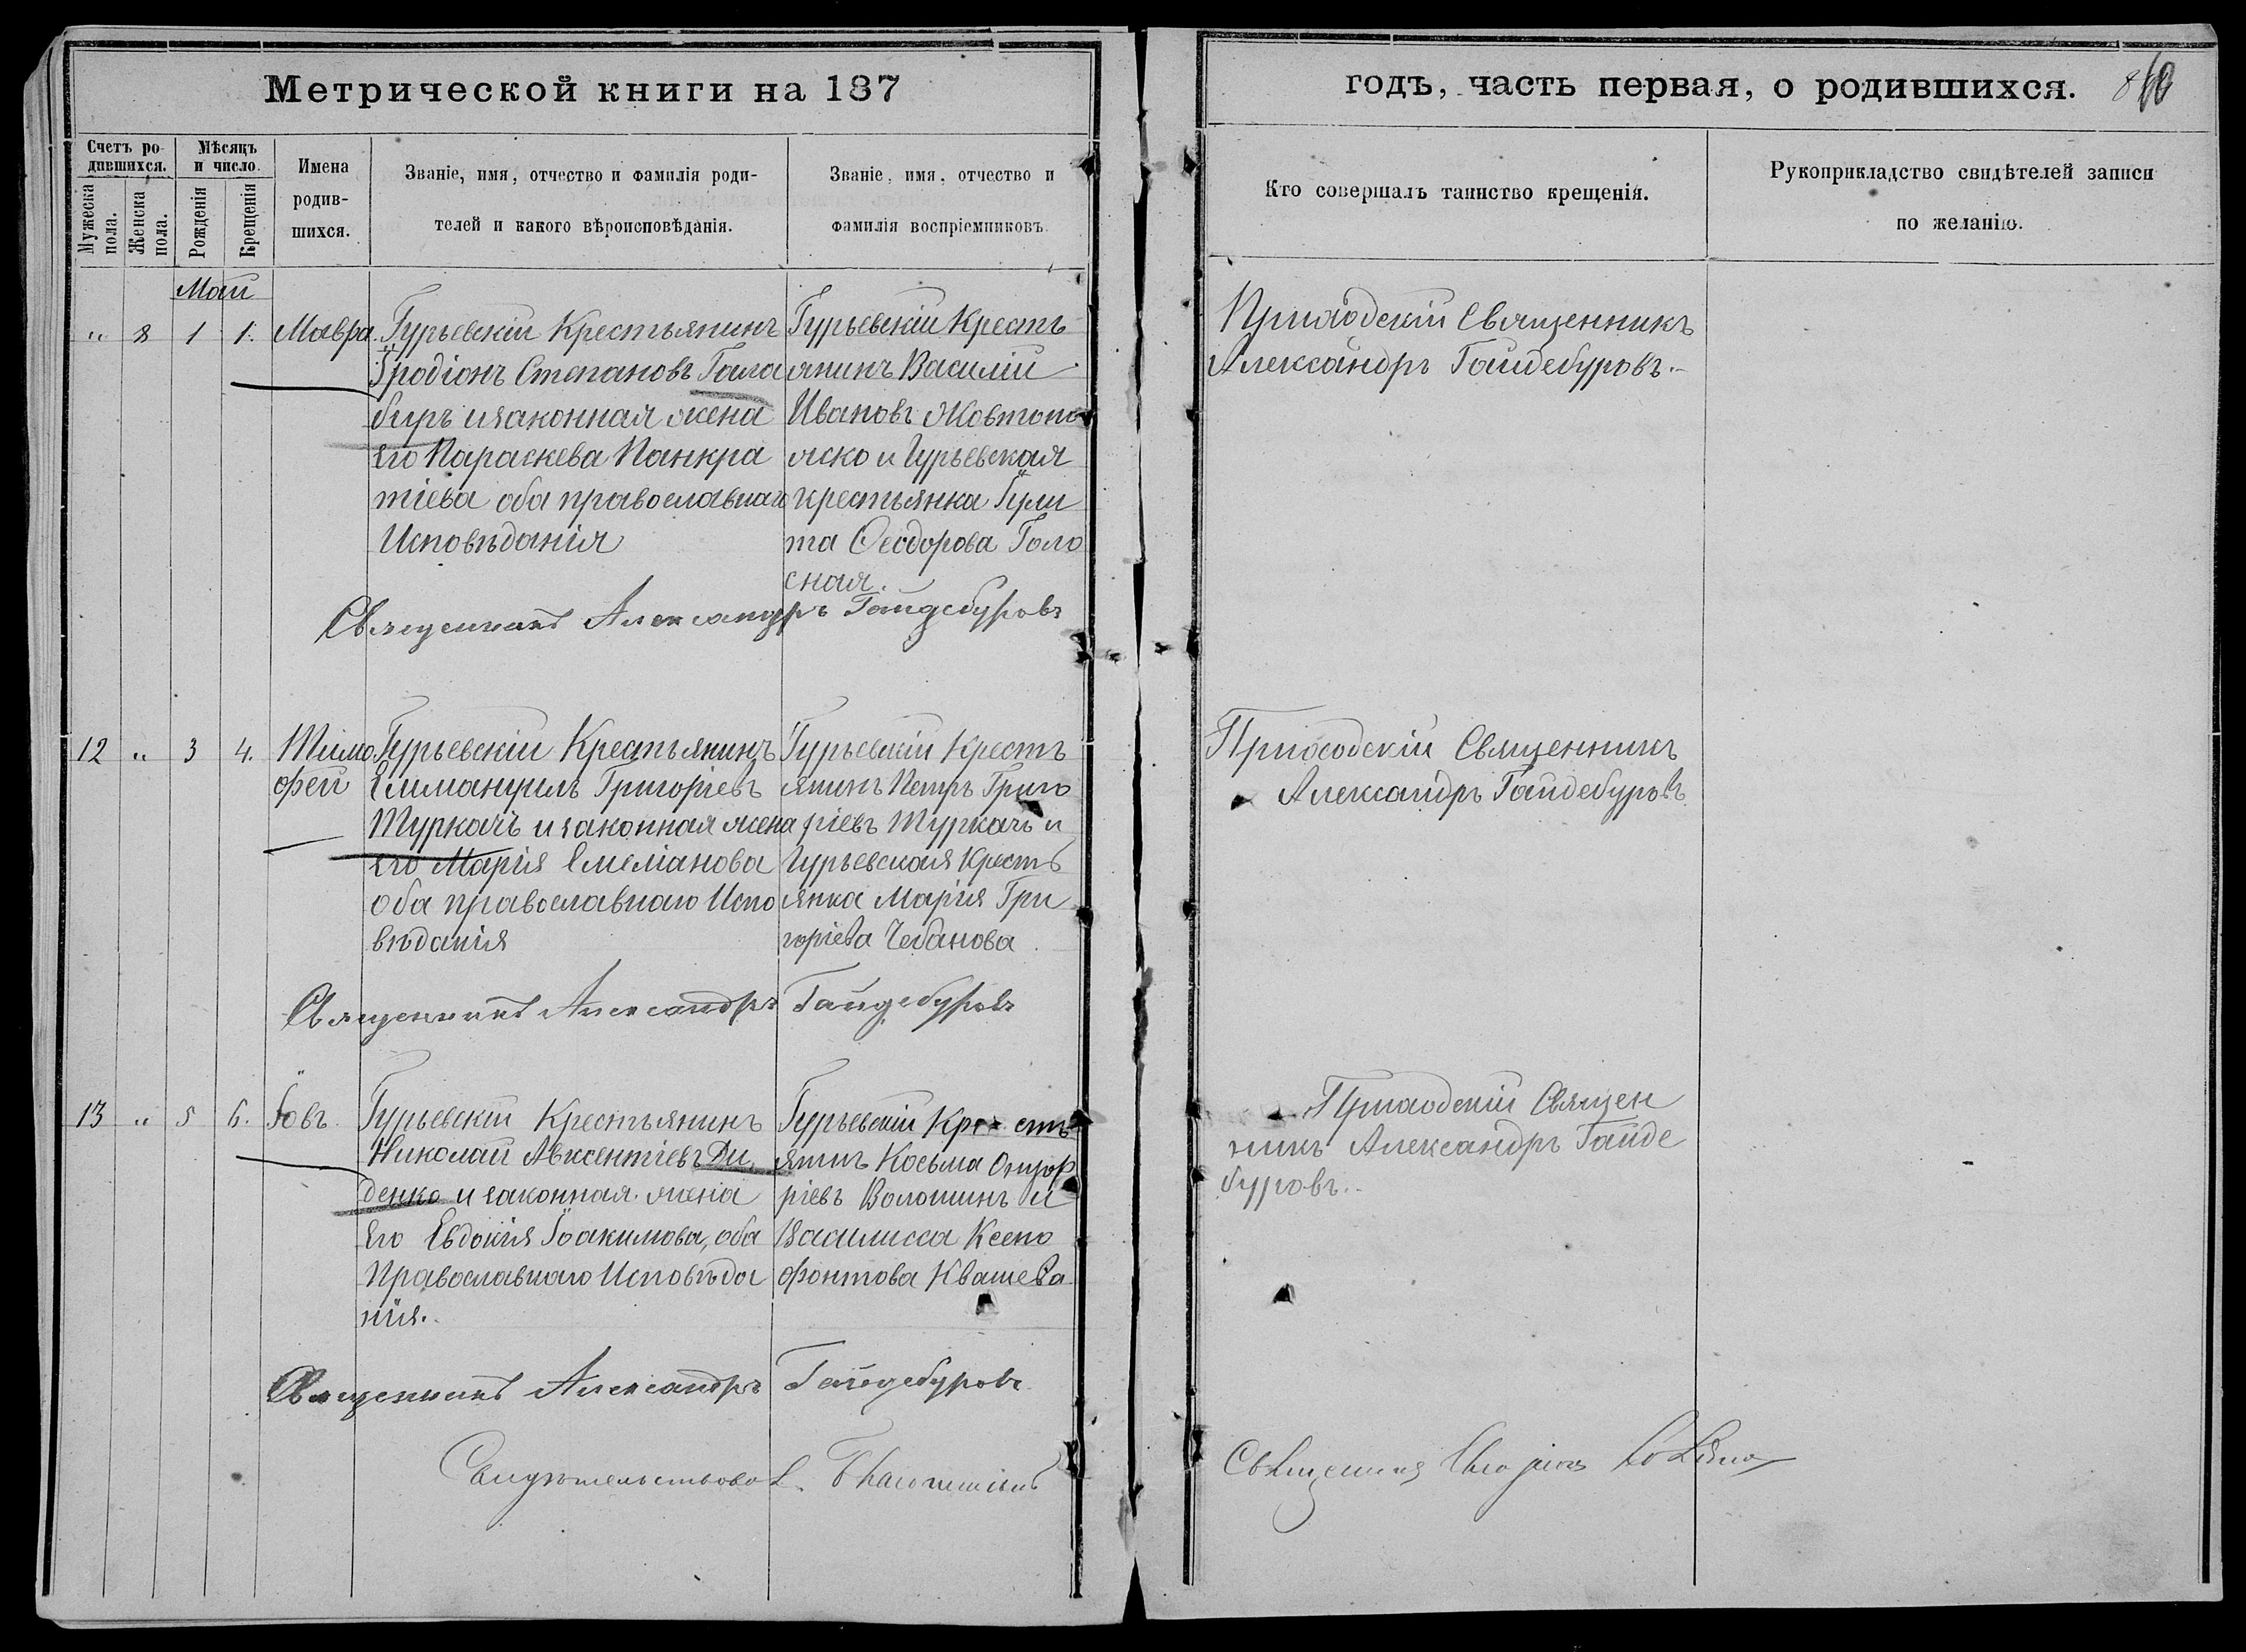 Метрической книги на 187
годъ, часть первая, о родившихся.
Счетъ ро-
дившихся.
Мѣсяцъ
и число.
Мужеска
пола.
Женска
пола.
Рожденія
Крещенія
Имена
родив-
шихся.
Званіе, имя, отчество и фамилія роди-
телей и какого вѣроисповѣданія.
Званіе, имя, отчество и
фамилія воспріемниковъ.
Кто совершалъ таинство крещенія.
Рукоприкладство свидѣтелей записи
по желанію.
Май
" 8 1 1. Мавра.
Гурьевскій Крестьянинъ
Іродіонъ Степановъ Гала
биръ и законная жена
его Параскева Панкра
тіева оба православнаго
Исповѣданія
Гурьевскій Кресть
янинъ Василій
Ивановъ Жовтоно
жко и Гурьевская
крестьянка Іули
та Ѳеодорова Голо
сная.
Приходскій Священникъ
Александръ Гайдебуровъ.
Священникъ Александръ Гайдебуровъ
12 " 3 4. Тимо
фей
Гурьевскій Крестьянинъ
Еммануилъ Григоріевъ
Туркачъ и законная жена
его Марія Емеліанова
оба православнаго Испо
вѣданія
Гурьевскій Кресть
янинъ Петръ Григо
ріевъ Туркачъ и
Гурьевская Кресть
янка Марія Гри
горіева Чебанова
Приходскій Священникъ
Александръ Гайдебуровъ
Священникъ Александръ Гайдебуровъ
13 " 5 6. Іовъ.
Гурьевскій Крестьянинъ
Николай Авксентіевъ Ди
денко и законная жена
Его Евдокія Іоакимова, оба
Православнаго Исповѣда
нія.
Гурьевскій Кре сть
янинъ Косьма
ріевъ Волошинъ и
Василисса Ксено
фонтова Квашева
Приходскій Священ
никъ Александръ Гайде
буровъ.
Священникъ Александръ Гайдебуровъ
Свидѣтельствовал
Священникъ